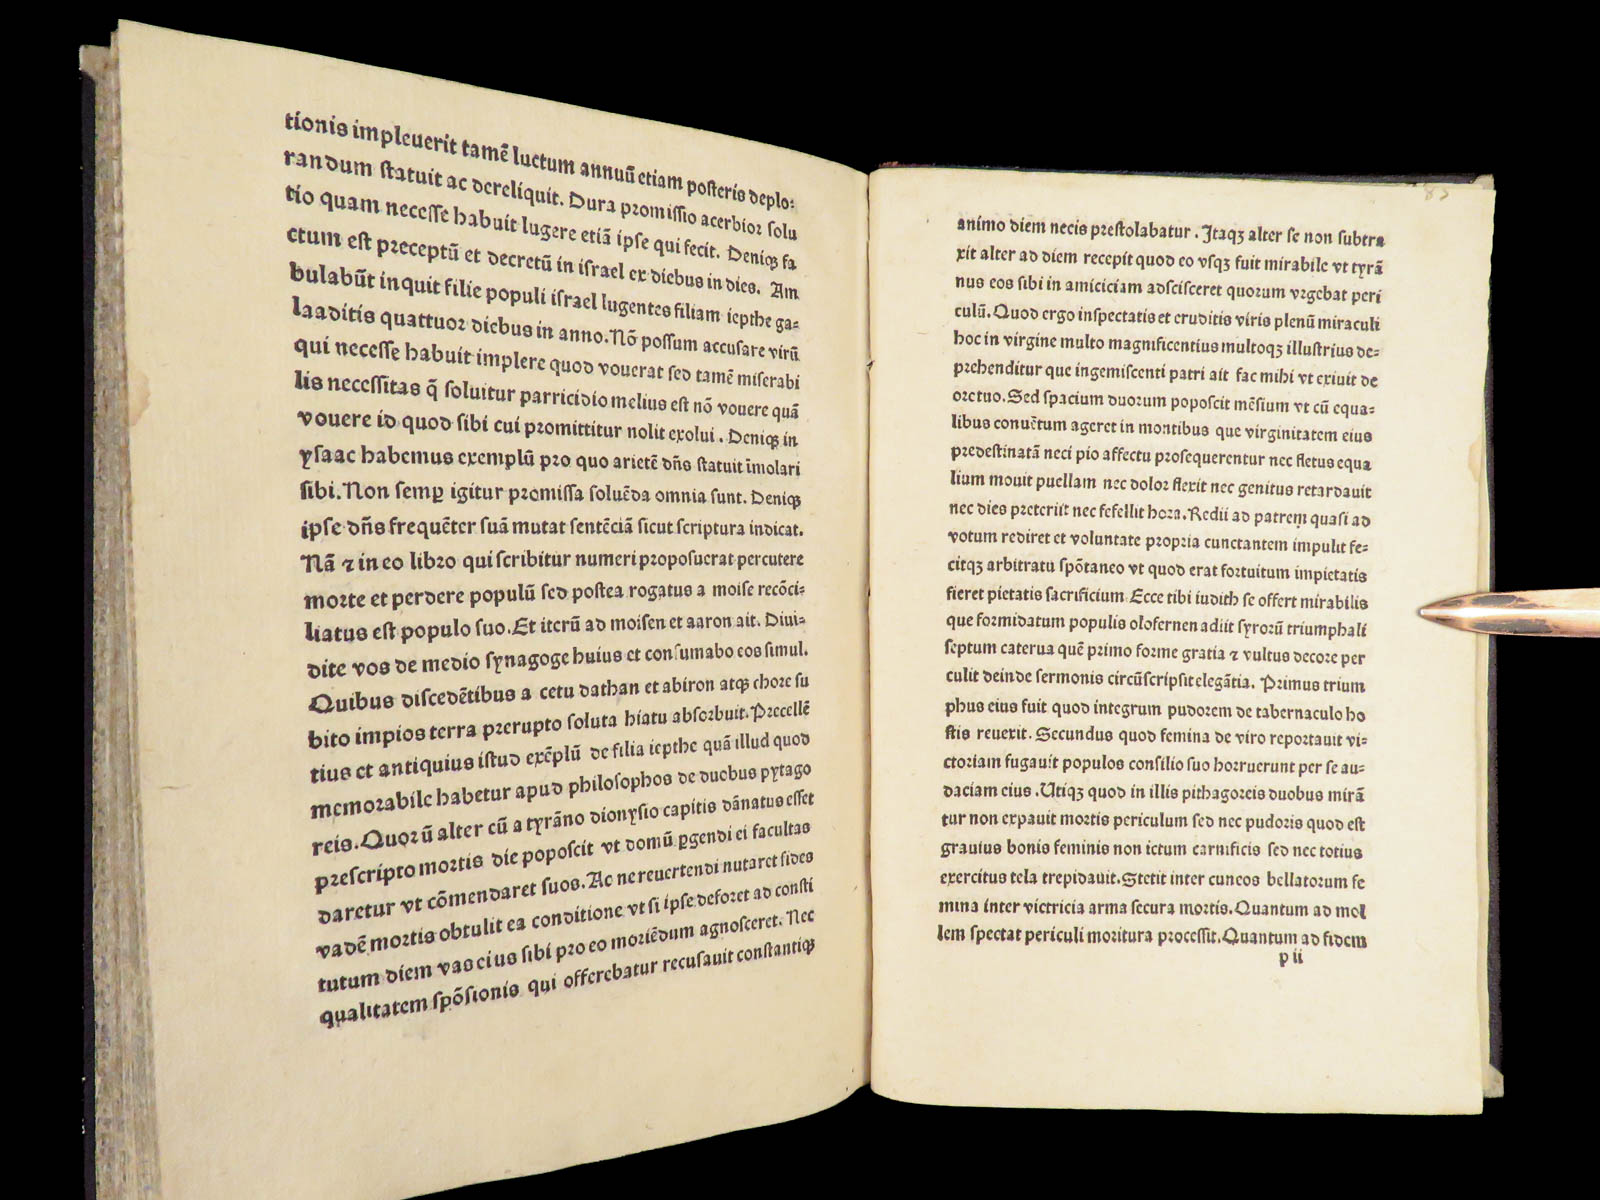 tionis impleuerit tamē luctum annuū etiam posteris deplo⸗
randum statuit ac dereliquit. Dura promissio acerbior solu
tio quam necesse habuit lugere etiā ipse qui fecit. Deniqꝫ fa
ctum est preceptū et decretū in israel ex diebus in dies. Am
bulabūt inquit filie populi israel lugentes filiam iepthe ga⸗
laaditis quattuor diebus in anno. Nō possum accusare virū
qui necesse habuit implere quod vouerat sed tamē miserabi
lis necessitas q̄ soluitur parricidio melius est nō vouere quā
vouere id quod sibi cui promittitur nolit exolui. Deniqꝫ in
ysaac habemus exemplū pro quo arietē dn̄s statuit īmolari
sibi. Non semꝑ igitur promissa soluēda omnia sunt. Deniqꝫ
ipse dn̄s frequēter suā mutat sentēciā sicut scriptura indicat.
Nā ⁊ in eo libro qui scribitur numeri proposuerat percutere
morte et perdere populū sed postea rogatus a moise recōci⸗
liatus est populo suo. Et iterū ad moisen et aaron ait. Diui⸗
dite vos de medio synagoge huius et consumabo eos simul.
Quibus discedētibus a cetu dathan et abiron atqꝫ chore su
bito impios terra prerupto soluta hiatu absorbuit. Precellē
tius et antiquius istud exēplū de filia iepthe quā illud quod
memorabile habetur apud philosophos de duobus pytago
reis. Quorū alter cū a tyrāno dionysio capitis dānatus esset
prescripto mortis die poposcit vt domū ꝑgendi ei facultas
daretur vt cōmendaret suos. Ac ne reuertendi nutaret fides
vadē mortis obtulit ea conditione vt si ipse deforet ad consti
tutum diem vas eius sibi pro eo moriēdum agnosceret. Nec
qualitatem spōsionis qui offerebatur recusauit constantiqꝫ
83
animo diem necis prestolabatur. Itaqꝫ alter se non subtra
xit alter ad diem recepit quod eo vsqꝫ fuit mirabile vt tyrā
nus eos sibi in amiciciam adscisceret quorum vrgebat peri
culū. Quod ergo inspectatis et eruditis viris plenū miraculi
hoc in virgine multo magnificentius multoqꝫ illustrius de⸗
prehenditur que ingemiscenti patri ait fac mihi vt exiuit de
ore tuo. Sed spacium duorum poposcit mēsium vt cū equa⸗
libus conuētum ageret in montibus que virginitatem eius
predestinatā neci pio affectu prosequerentur nec fletus equa
lium mouit puellam nec dolor flexit nec genitus retardauit
nec dies preteriit nec fefellit hora. Redii ad patrem quasi ad
votum rediret et voluntate propria cunctantem impulit fe⸗
citqꝫ arbitratu spōtaneo vt quod erat fortuitum impietatis
fieret pietatis sacrificium Ecce tibi iudith se offert mirabilis
que formidatum populis olofernen adiit syrorū triumphali
septum caterua quē primo forme gratia ⁊ vultus decore per
culit deinde sermonis circūscripsit elegātia. Primus trium
phus eius fuit quod integrum pudorem de tabernaculo ho
stis reuexit. Secundus quod femina de viro reportauit vi⸗
ctoriam fugauit populos consilio suo horruerunt per se au⸗
daciam eius. Utiqꝫ quod in illis pithagoreis duobus mirā
tur non expauit mortis periculum sed nec pudoris quod est
grauius bonis feminis non ictum carnificis sed nec totius
exercitus tela trepidauit. Stetit inter cuneos bellatorum fe
mina inter victricia arma secura mortis. Quantum ad mol
lem spectat periculi moritura processit. Quantum ad fidem
p ii